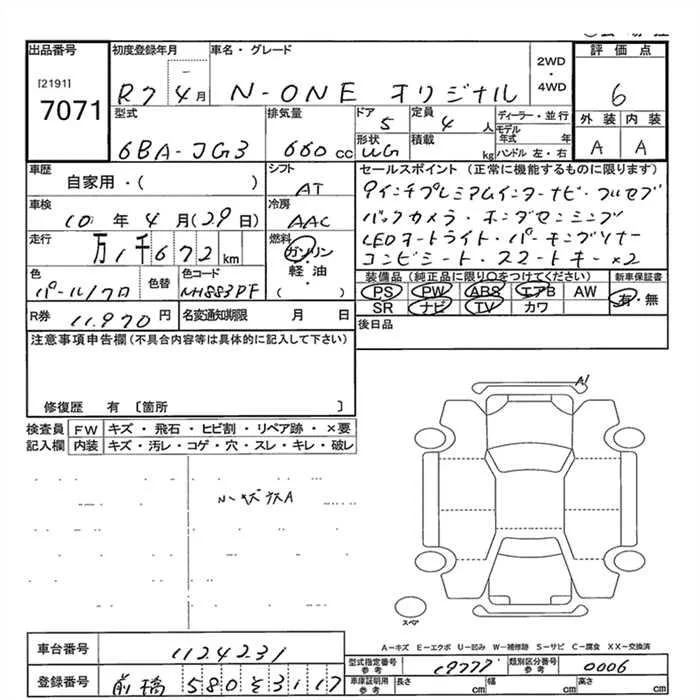 出品番号
[2191]
7071
初度登録年月
R7 4月
車名・グレード
N-ONE オリジナル
2WD
・
4WD
評価点
6
外装 内装
A A
型式
6BA-JG3
排気量
660cc
ドア
5
定員
4人
形状
WG
積載
kg
ディーラー・並行
モデル年式 年
ハンドル 左・右
車歴
自家用・( )
シフト
AT
車検
10年4月(29日)
冷房
AAC
走行
万1千672km
燃料
ガソリン・軽油・( )
色
パール/クロ
色替
色コード
NH883PF
R券
11,970円
名変通知期限 月 日
セールスポイント (正常に機能するものに限ります)
9インチプレミアムインターナビ・フルセグ
バックカメラ・ホンダセンシング
LEDオートライト・パーキングソナー
コンビシート・スマートキー×2
装備品(純正品に限り○をつけてください)
新車保証書
PS PW ABS エアB AW
SR ナビ TV カワ
有・無
後日品
注意事項申告欄(不具合内容等は具体的に記入して下さい)
修復歴 有 〔箇所 〕
検査員記入欄
FW キズ・飛石・ヒビ割・リペア跡・×要
内装 キズ・汚レ・コゲ・穴・スレ・キレ・破レ
A1
スペア
A-キズ E-エクボ U-凹み W-補修跡 S-サビ C-腐食 XX-交換済
車台番号
1124231
登録番号
前橋 580 そ 3117
型式指定番号 参考
19777
類別区分番号 参考
0006
車庫証明用 参考
長さ cm 幅 cm 高さ cm